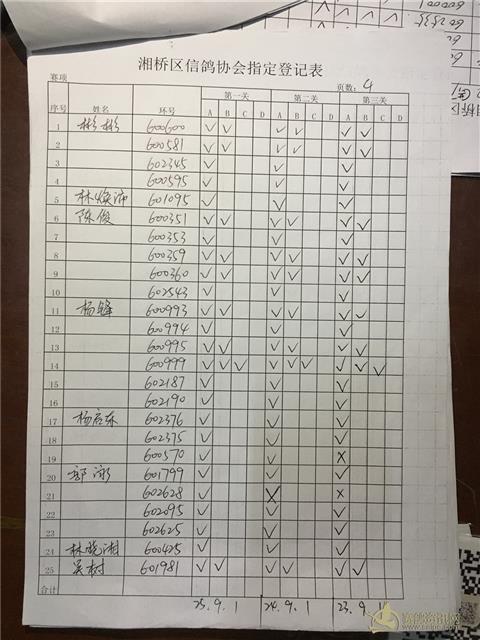 湘桥区信鸽协会指定登记表
赛项 页数: 4
序号 姓名 环号 第一关 第二关 第三关
A B C D A B C D A B C D
1 彬彬 600600 √ √ √ √ √ √
2 600581 √ √ √ √ √ √
3 602345 √ √ √
4 600595 √ √ √
5 林焕沛 601095 √ √ √
6 陈俊 600351 √ √ √ √ √ √
7 600353 √ √ √
8 600359 √ √ √ √ √ √
9 600360 √ √ √ √ √ √
10 602543 √ √ √
11 杨锋 600993 √ √ √ √ √ √
12 600994 √ √ √
13 600995 √ √ √ √ √ √
14 600999 √ √ √ √ √ √ √ √ √
15 602187 √ √ √
16 602190 √ √ √
17 602376 √ √ √
18 602375 √ √ √
19 600570 √ √ ×
20 601799 √ √ √
21 602628 √ × ×
22 602095 √ √ √
23 602625 √ √ √
24 600425 √ √ √
25 吴树 601981 √ √ √ √ √ √
合计
25.9.1 24.9.1 23.9.1